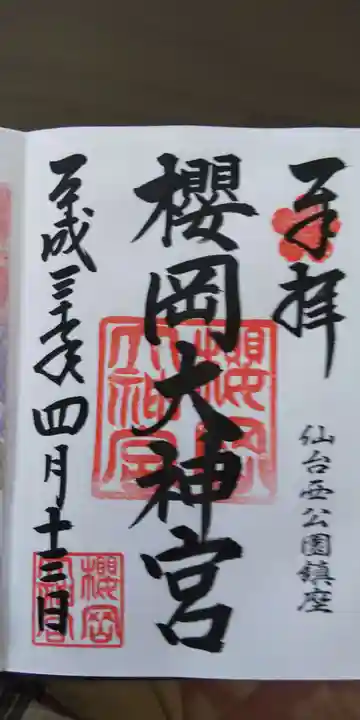 奉拝
仙台西公園鎮座
櫻岡大神宮
櫻岡
大神宮
平成三十年四月十三日
櫻岡